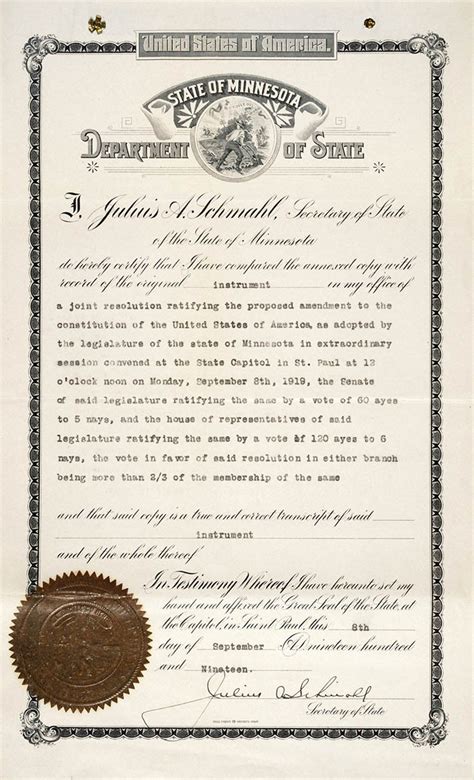 United States of America.
STATE OF MINNESOTA
DEPARTMENT OF STATE
I, Julius A. Schmahl, Secretary of State
of the State of Minnesota
do hereby certify that I have compared the annexed copy with
record of the original instrument in my office of
a joint resolution ratifying the proposed amendment to the
constitution of the United States of America, as adopted by
the legislature of the state of Minnesota in extraordinary
session convened at the State Capitol in St. Paul at 12
o'clock noon on Monday, September 8th, 1919, the Senate
of said legislature ratifying the same by a vote of 60 ayes
to 5 nays, and the house of representatives of said
legislature ratifying the same by a vote of 120 ayes to 6
nays, the vote in favor of said resolution in either branch
being more than 2/3 of the membership of the same
and that said copy is a true and correct transcript of said
instrument
and of the whole thereof
In Testimony Whereof I have hereunto set my
hand and affixed the Great Seal of the State, at
the Capitol, in Saint Paul, this 8th
day of September AD nineteen hundred
and Nineteen.
Julius A Schmahl
Secretary of State